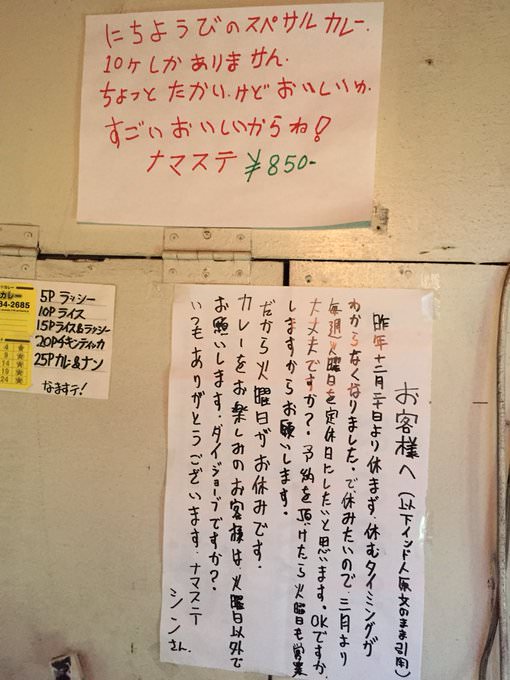 にちようびのスペサルカレー.
10ヶしかありません.
ちょっとたかい.けどおいしいゅ.
すごいおいしいからね!
ナマステ ¥850-
カレー
84-2685
5P ラッシー
10P ライス
15Pライス&ラッシー
20Pチキンティッカ
25Pカレー&ナン
なますテ!
4
9
14
19
24
お客様へ(以下インド人原文のまま引用)
昨年十二月二十日より休まず.休むタイミングが
わからなくなりました.で休みたいので.三月より
毎週火曜日を定休日にしたいと思います。OKですか.
大丈夫ですか?.予約を頂けたら火曜日も営業
しますからお願いします.
だから火曜日がお休みです.
カレーをお楽しみのお客様は火曜日以外で
お願いします.ダイジョーブですか?.
いつもありがとうございます.ナマステ
シンさん.